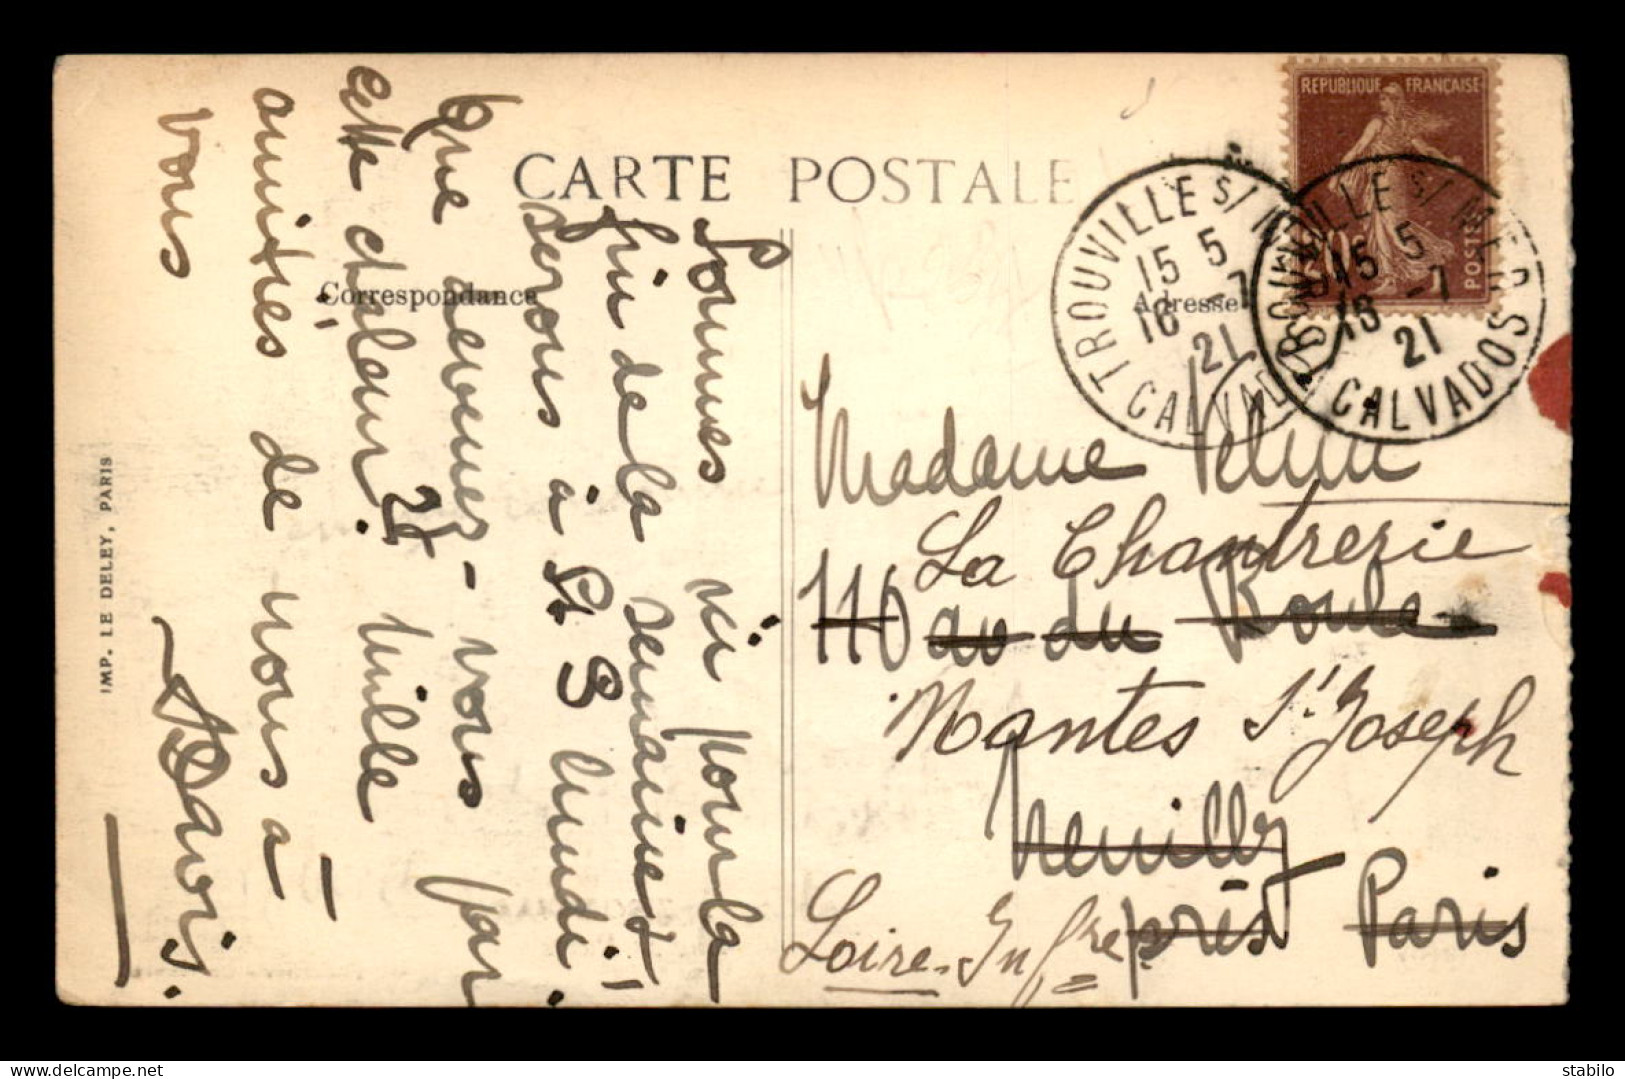 CARTE POSTALE
Correspondance
Adresse
REPUBLIQUE FRANÇAISE
POSTES
TROUVILLE S/ MER
15 5
16 -7
21
CALVADOS
TROUVILLE S/ MER
15 5
16 -7
21
CALVADOS
Sommes ici pour la
fin de la semaine &
serons à St S lundi!
Que devenez-vous par
cette chaleur? Mille
amitiés de nous à
vous
Madame
La Chantrerie
110 av du Roule
Nantes St Joseph
Neuilly
près Paris
Loire-Infre
IMP. LE DELEY, PARIS
delcampe.net
stabilo